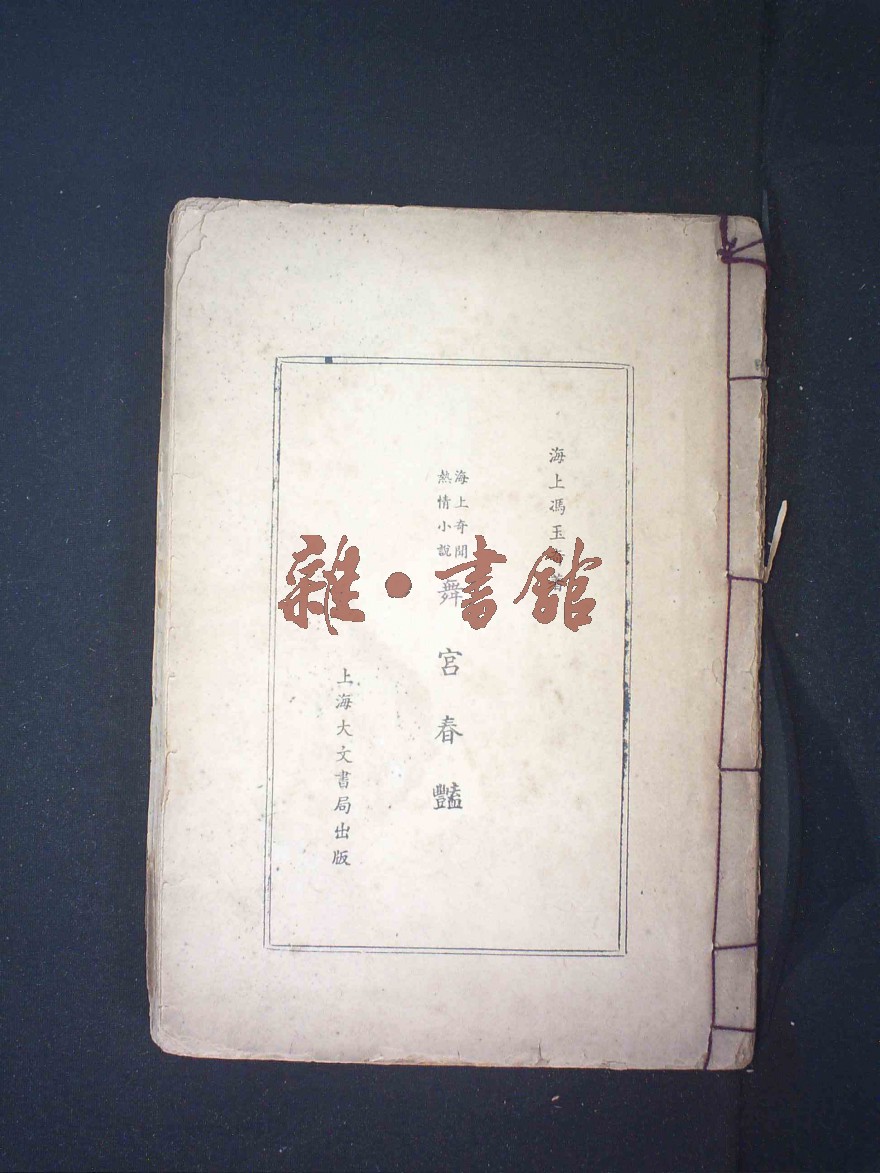 海上馮玉奇著
海上奇聞
熱情小說
舞宮春豔
上海大文書局出版
雜·書館